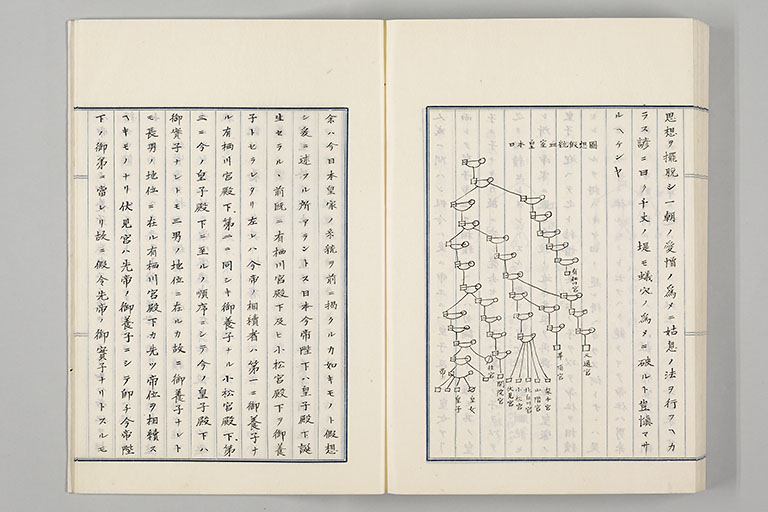 思想ヲ擺脱シ一朝ノ愛憎ノ為メニ姑息ノ法ヲ行フヘカ
ラス諺ニ曰ク千丈ノ堤モ蟻穴ノ為メニ破ルト豈慎マサ
ルヘケンヤ
日本皇室血統假想圖
有栖川宮
久邇宮
華頂宮
梨本宮
山階宮
北白川宮
小松宮
伏見宮
閑院宮
桂宮
皇女
皇子
帝
余ハ今日本皇家ノ系統ヲ前ニ掲クルカ如キモノト假想
シ爰ニ述フル所アラントス日本今帝陛下ハ皇子殿下誕
生セラル、前既ニ有栖川宮殿下及ヒ小松宮殿下ヲ御養
子トセラレタリ左レハ今帝ノ相續者ハ第一ニ御養子ナ
ル有栖川宮殿下、第二ニ同シキ御養子ナル小松宮殿下、第
三ニ今ノ皇子殿下ニ至ルノ順序ニシテ今ノ皇子殿下ハ
御實子ナレトモ三男ノ地位ニ在ルカ故ニ御養子ナレト
モ長男ノ地位ニ在ル有栖川宮殿下カ先ツ帝位ヲ相續ス
ヘキモノナリ伏見宮ハ先帝ノ御養子ニシテ即チ今帝陛
下ノ御弟ニ當レリ故ニ假令先帝ノ御實子ナリトスルモ